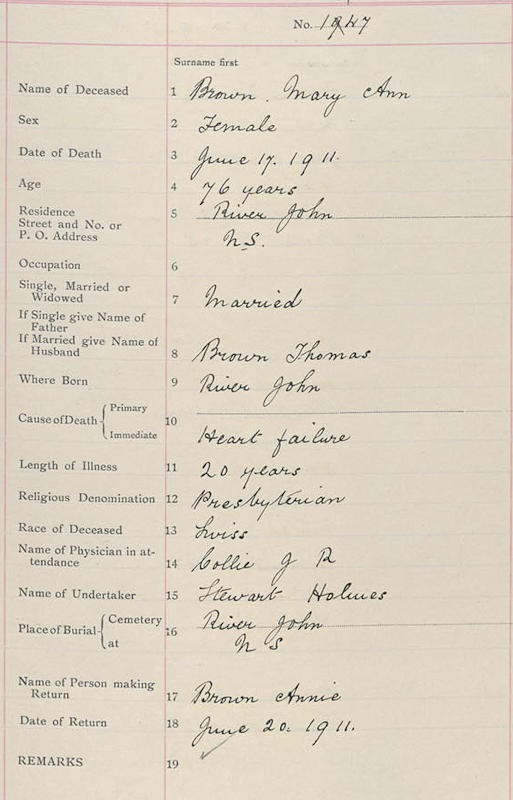 No. 1947
Surname first
Name of Deceased 1 Brown. Mary Ann
Sex 2 Female
Date of Death 3 June 17. 1911.
Age 4 76 years
Residence 5 River John
Street and No. or
P. O. Address N.S.
Occupation 6
Single, Married or
Widowed 7 Married
If Single give Name of
Father
If Married give Name of
Husband 8 Brown Thomas
Where Born 9 River John
Cause of Death { Primary 10
Immediate Heart failure
Length of Illness 11 20 years
Religious Denomination 12 Presbyterian
Race of Deceased 13 Swiss
Name of Physician in at-
tendance 14 Collie J R
Name of Undertaker 15 Stewart Holmes
Place of Burial { Cemetery 16 River John
at N S
Name of Person making
Return 17 Brown Annie
Date of Return 18 June 20. 1911.
REMARKS 19